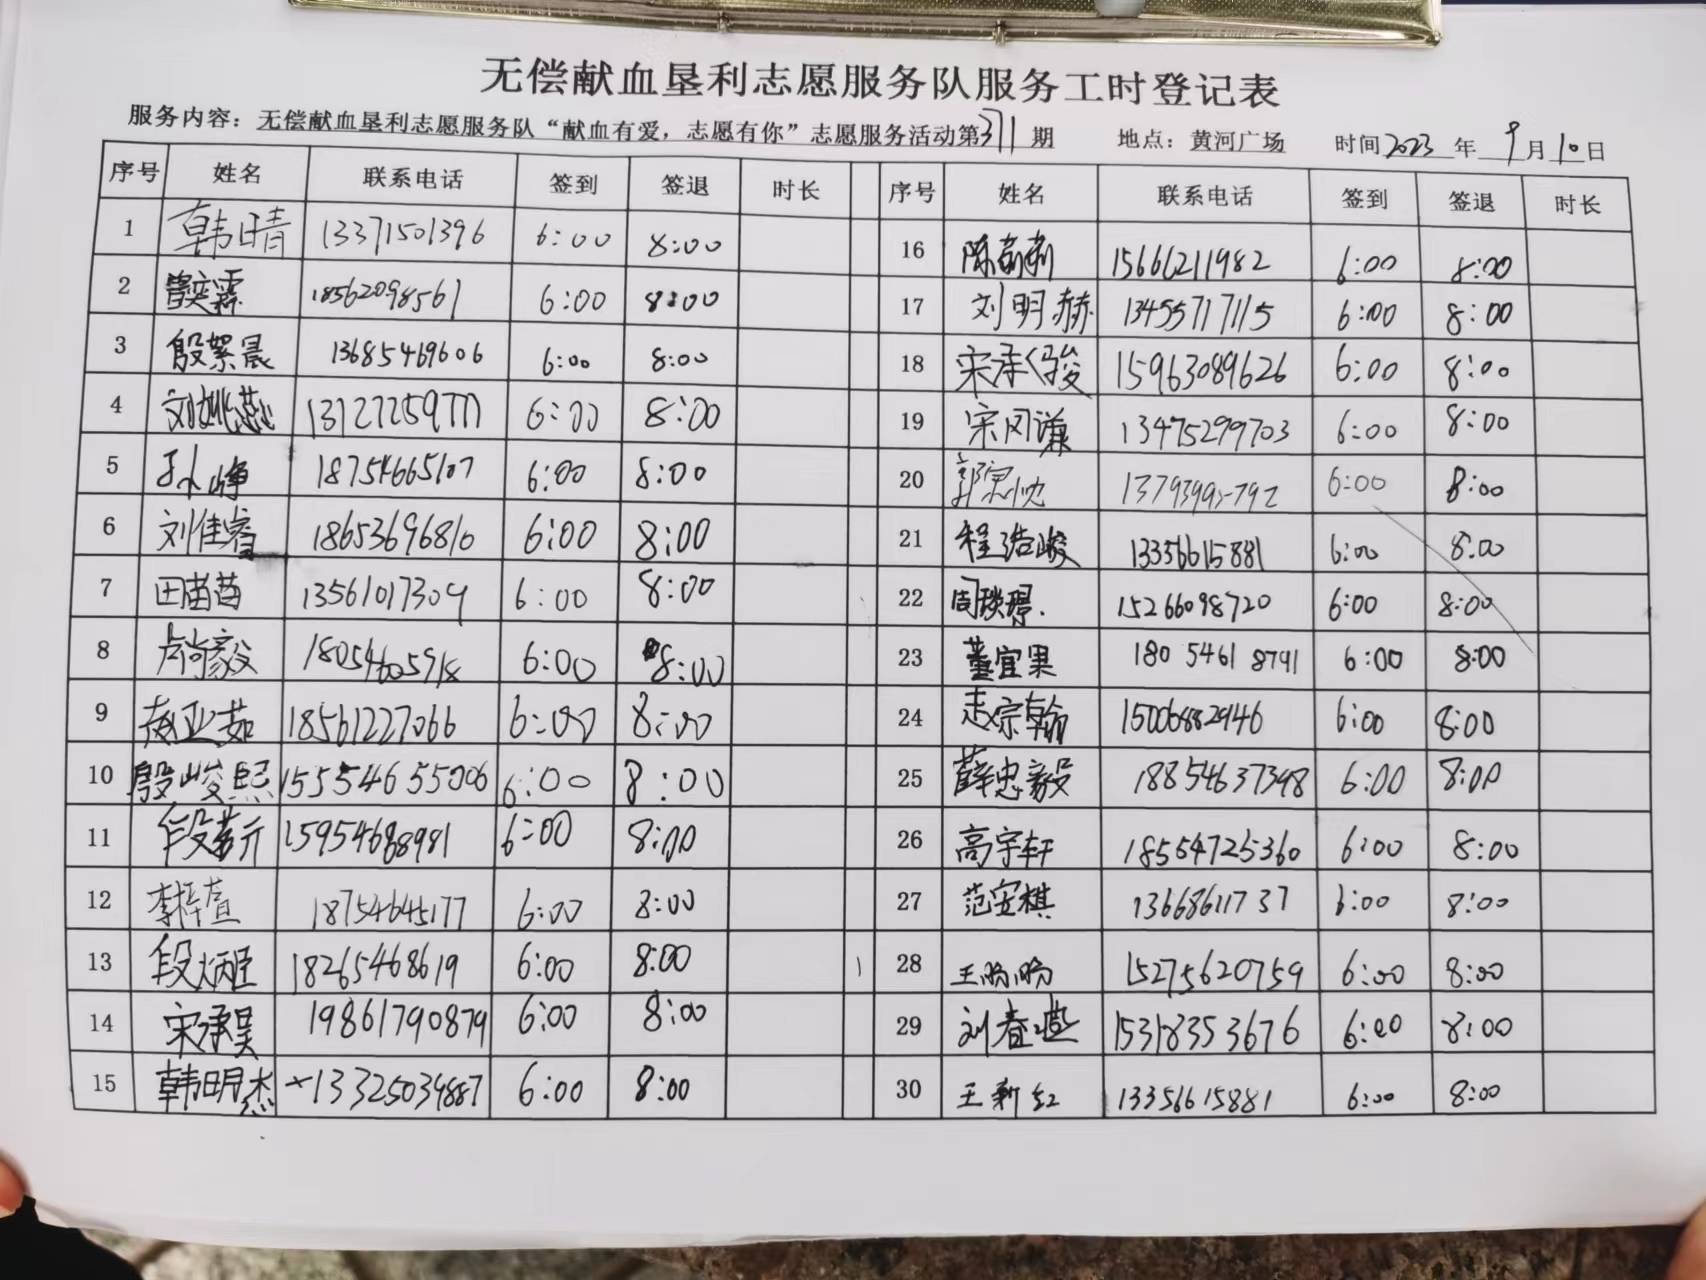 无偿献血垦利志愿服务队服务工时登记表
服务内容：无偿献血垦利志愿服务队“献血有爱，志愿有你”志愿服务活动第371期 地点：黄河广场 时间2023年9月10日
序号 姓名 联系电话 签到 签退 时长 序号 姓名 联系电话 签到 签退 时长
1 韩晴 13371501396 6:00 8:00 16 陈莉莉 15666211982 6:00 8:00
2 曾奕霖 18562098561 6:00 8:00 17 刘明赫 13455717115 6:00 8:00
3 殷絮晨 13685469606 6:00 8:00 18 宋承骏 15963089626 6:00 8:00
4 刘姚蕊 13127225977 6:00 8:00 19 宋风谦 13475299703 6:00 8:00
5 孙峥 18754665107 6:00 8:00 20 6:00 8:00
6 刘佳睿 18653696810 6:00 8:00 21 程浩峻 13356615881 6:00 8:00
7 田苗苗 13561017309 6:00 8:00 22 周琰璟 15266098720 6:00 8:00
8 尚豪 18054605918 6:00 8:00 23 董宜果 180 5461 8791 6:00 8:00
9 亚茹 18561227066 6:00 8:00 24 宗翰 15006882946 6:00 8:00
10 殷峻熙 15554655006 6:00 8:00 25 薛忠毅 18854637398 6:00 8:00
11 段 15954688981 6:00 8:00 26 高宇轩 18554725360 6:00 8:00
12 李梓萱 18754645177 6:00 8:00 27 范安棋 13668611737 6:00 8:00
13 段炳臣 18265468619 6:00 8:00 28 王 15275620759 6:00 8:00
14 宋承昊 19861790879 6:00 8:00 29 刘春燕 15318353676 6:00 8:00
15 韩明杰 13325034887 6:00 8:00 30 王新红 13356615881 6:00 8:00